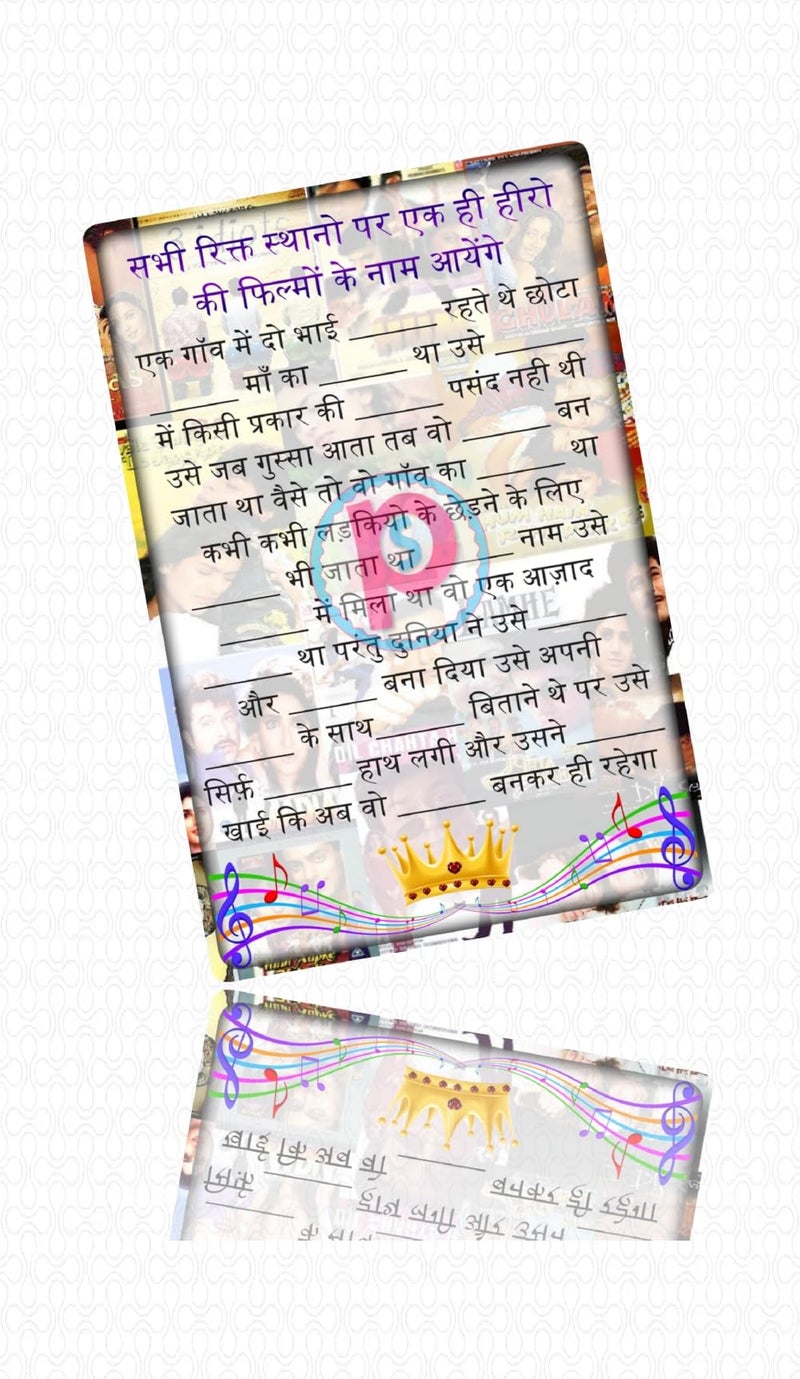 सभी रिक्त स्थानो पर एक ही हीरो
की फिल्मों के नाम आयेंगे
एक गॉव में दो भाई ______ रहते थे छोटा
______ माँ का ______ था उसे ______
में किसी प्रकार की ______ पसंद नही थी
उसे जब गुस्सा आता तब वो ______ बन
जाता था वैसे तो वो गॉव का ______ था
कभी कभी लड़कियो के छेड़ने के लिए
______ भी जाता था ______ नाम उसे
______ में मिला था वो एक आज़ाद
______ था परंतु दुनिया ने उसे ______
और ______ बना दिया उसे अपनी
______ के साथ______ बिताने थे पर उसे
सिर्फ़ ______ हाथ लगी और उसने ______
खाई कि अब वो ______ बनकर ही रहेगा